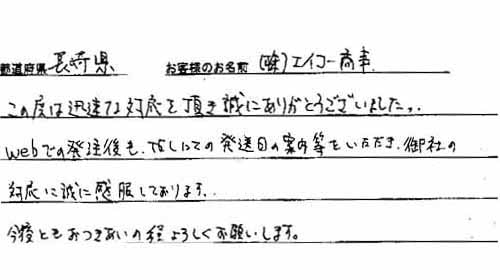 都道府県 長崎県 お客様のお名前 (株)エイコー商事
この度は迅速な対応を頂き誠にありがとうございました。
webでの発注後も、TELにての発送日の案内等をいただき、御社の
対応に誠に感服しております。
今後ともおつきあいの程よろしくお願いします。